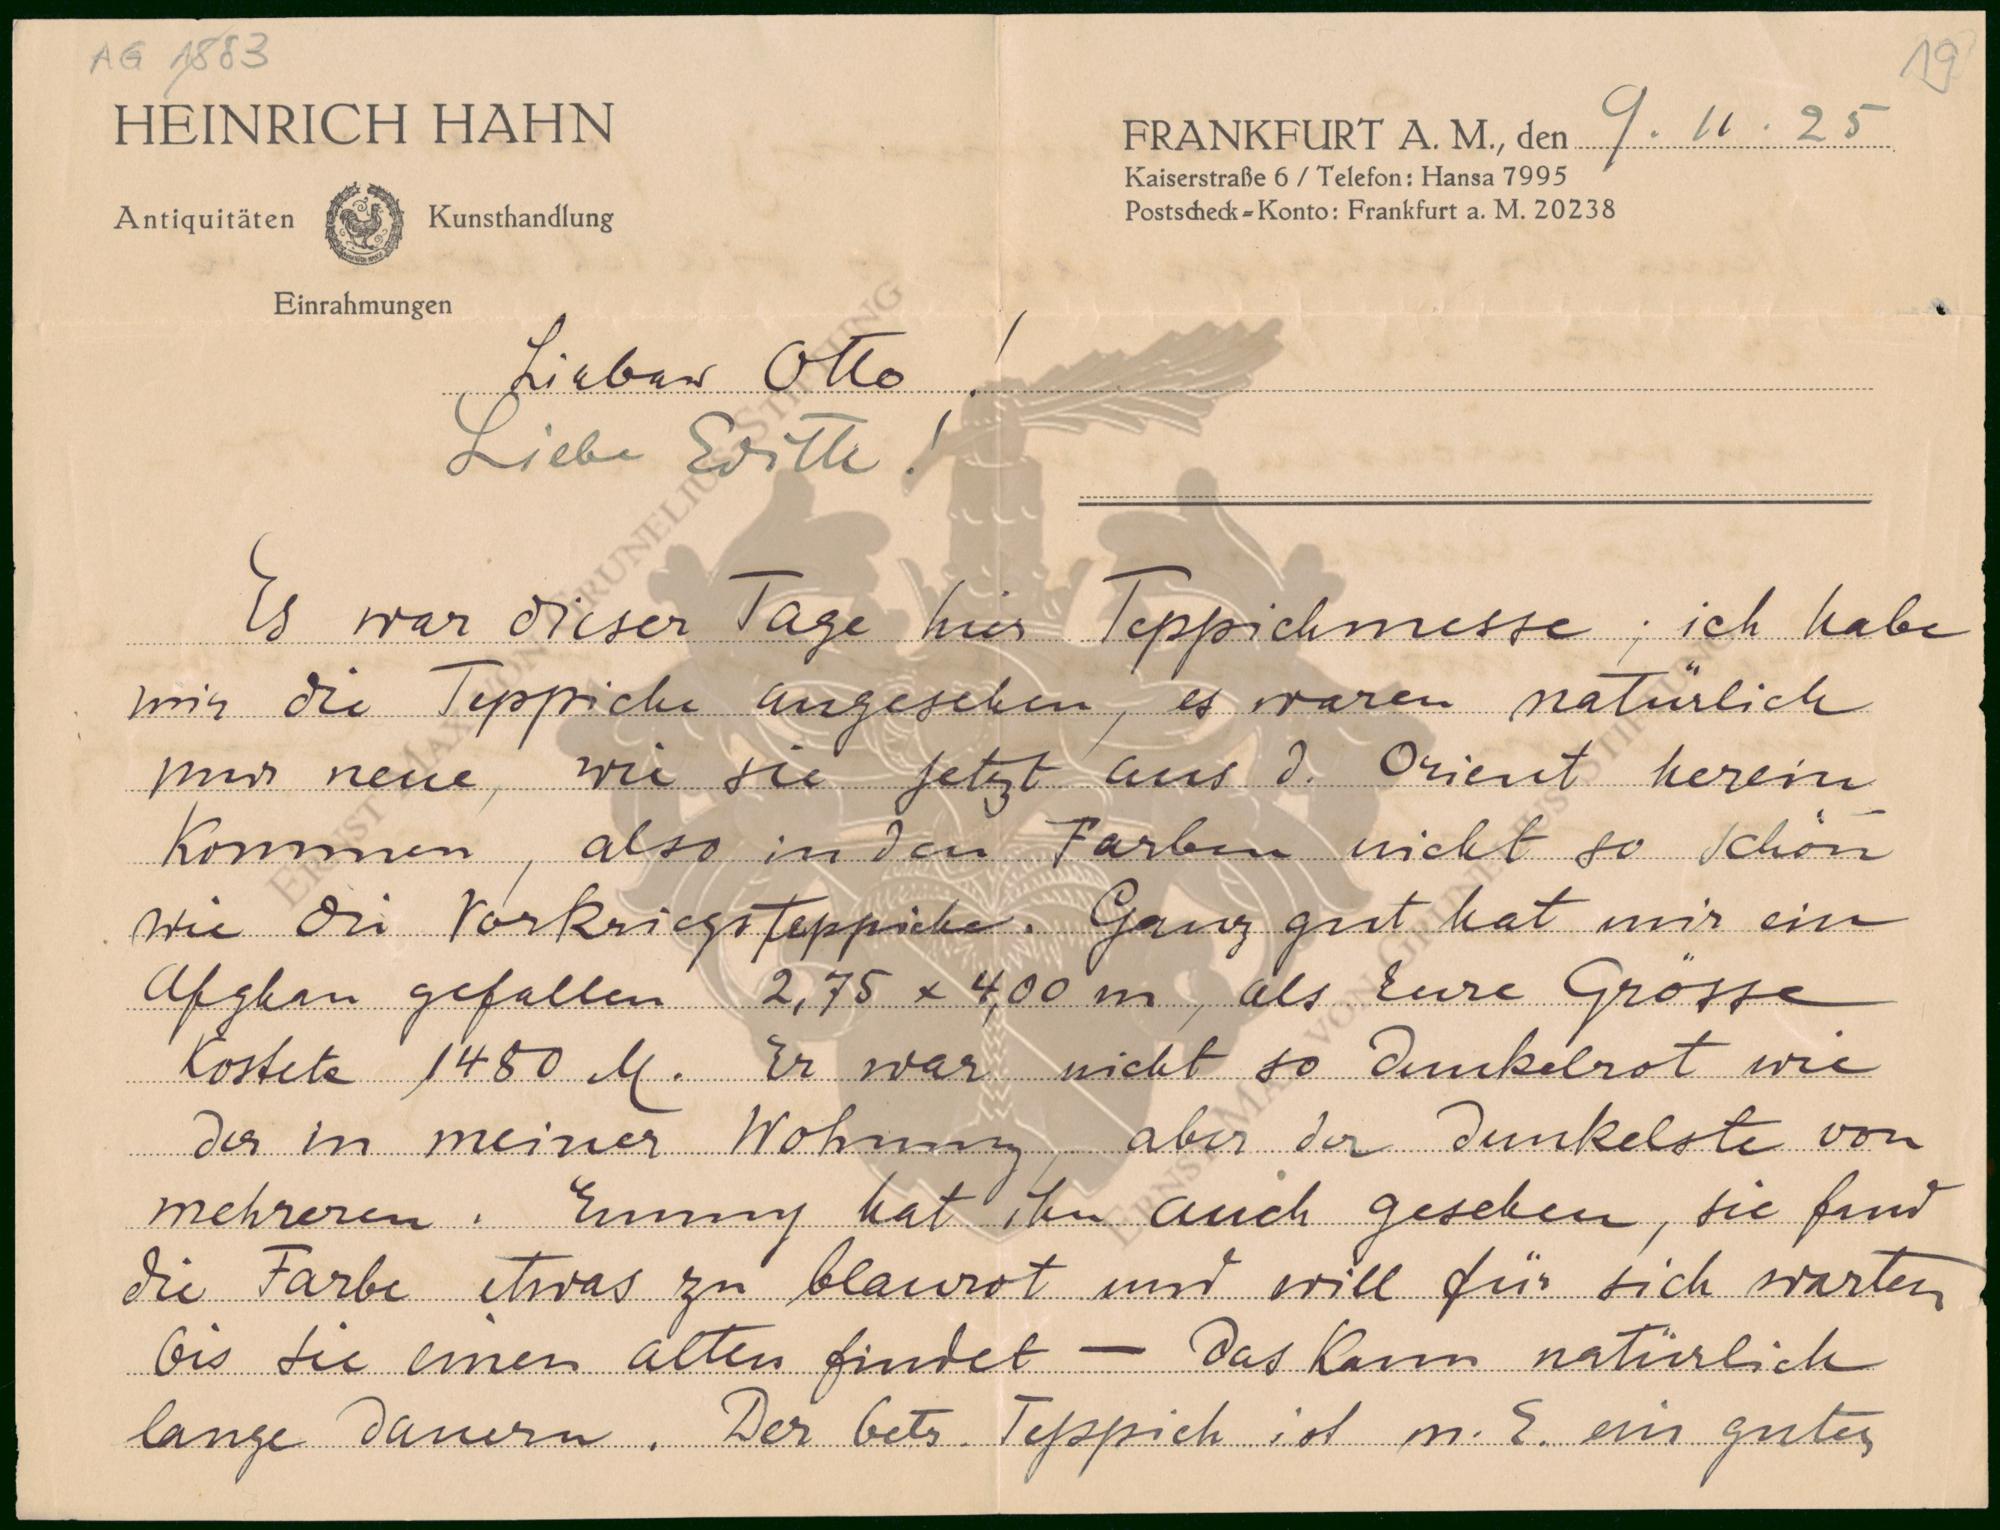 AG 1883
19
HEINRICH HAHN
Antiquitäten Kunsthandlung
Einrahmungen
FRANKFURT A. M., den 9. 11. 25
Kaiserstraße 6 / Telefon: Hansa 7995
Postscheck-Konto: Frankfurt a. M. 20238
Lieber Otto!
Liebe Edith!
Es war dieser Tage hier Teppichmesse, ich habe
mir die Teppiche angesehen, es waren natürlich
nur neue, wie sie jetzt aus d. Orient herein
kommen, also in den Farben nicht so schön
wie die Vorkriegsteppiche. Ganz gut hat mir ein
Afghan gefallen 2,75 x 4,00 m, als Eure Grösse
kostete 1480 M. Er war nicht so dunkelrot wie
der in meiner Wohnung, aber der dunkelste von
mehreren. Emmy hat ihn auch gesehen, sie fand
die Farbe etwas zu blaurot und will für sich warten
bis sie einen alten findet — das kann natürlich
lange dauern. Der betr. Teppich ist m. E. ein guter
ERNST MAX VON GRUNELIUS STIFTUNG
ERNST MAX VON GRUNELIUS STIFTUNG